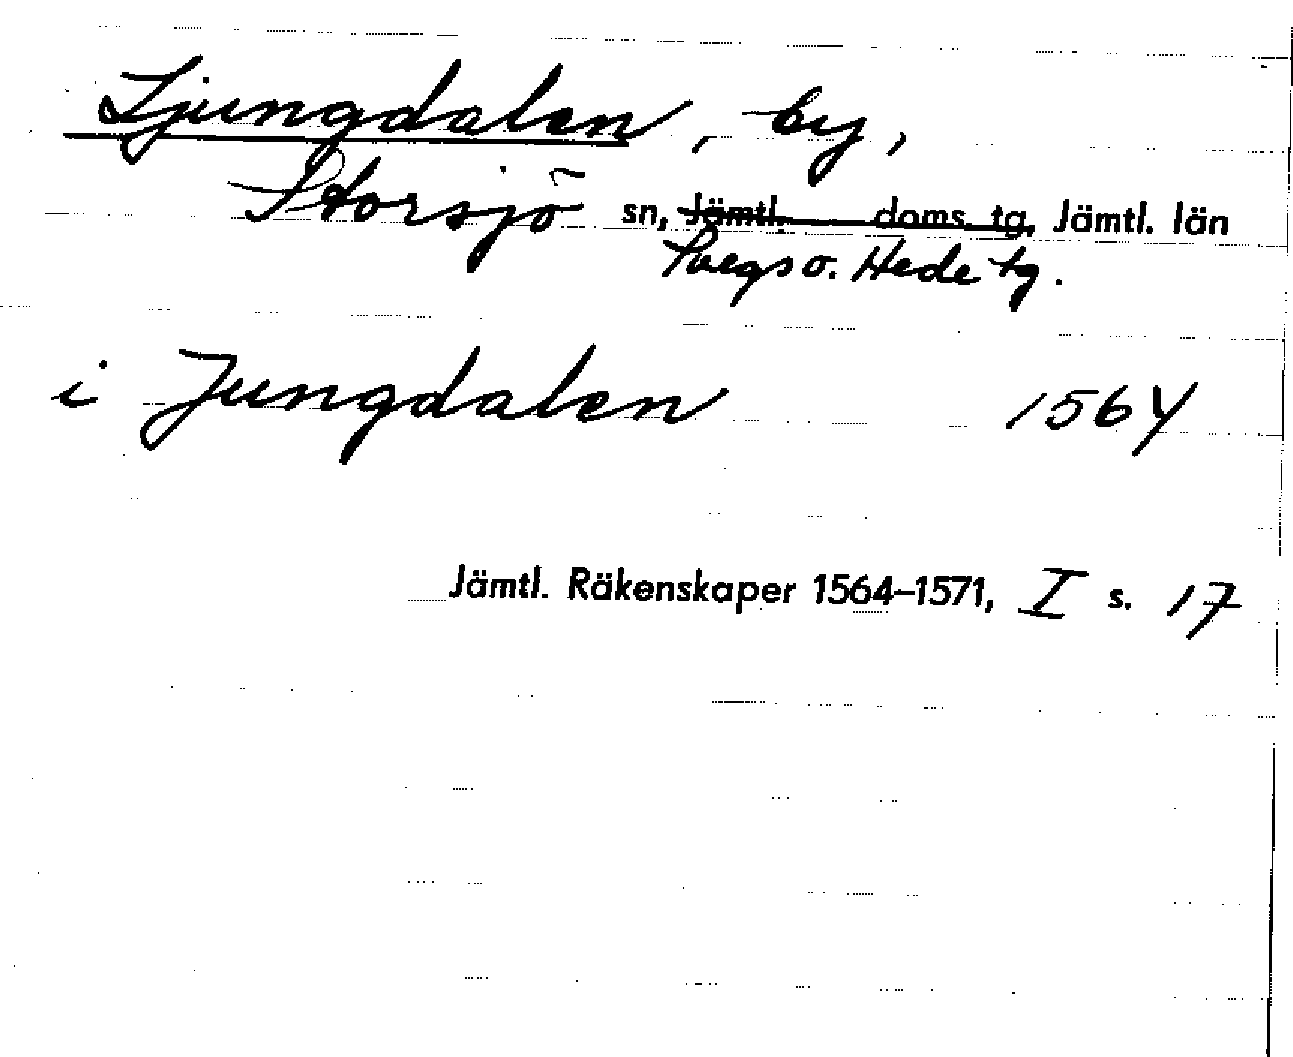 Ljungdalen, by,
Storsjö sn, Jämtl. doms. tg, Jämtl. län
Svegs o. Hede tg.
i Jungdalen 1564
Jämtl. Räkenskaper 1564–1571, I s. 17